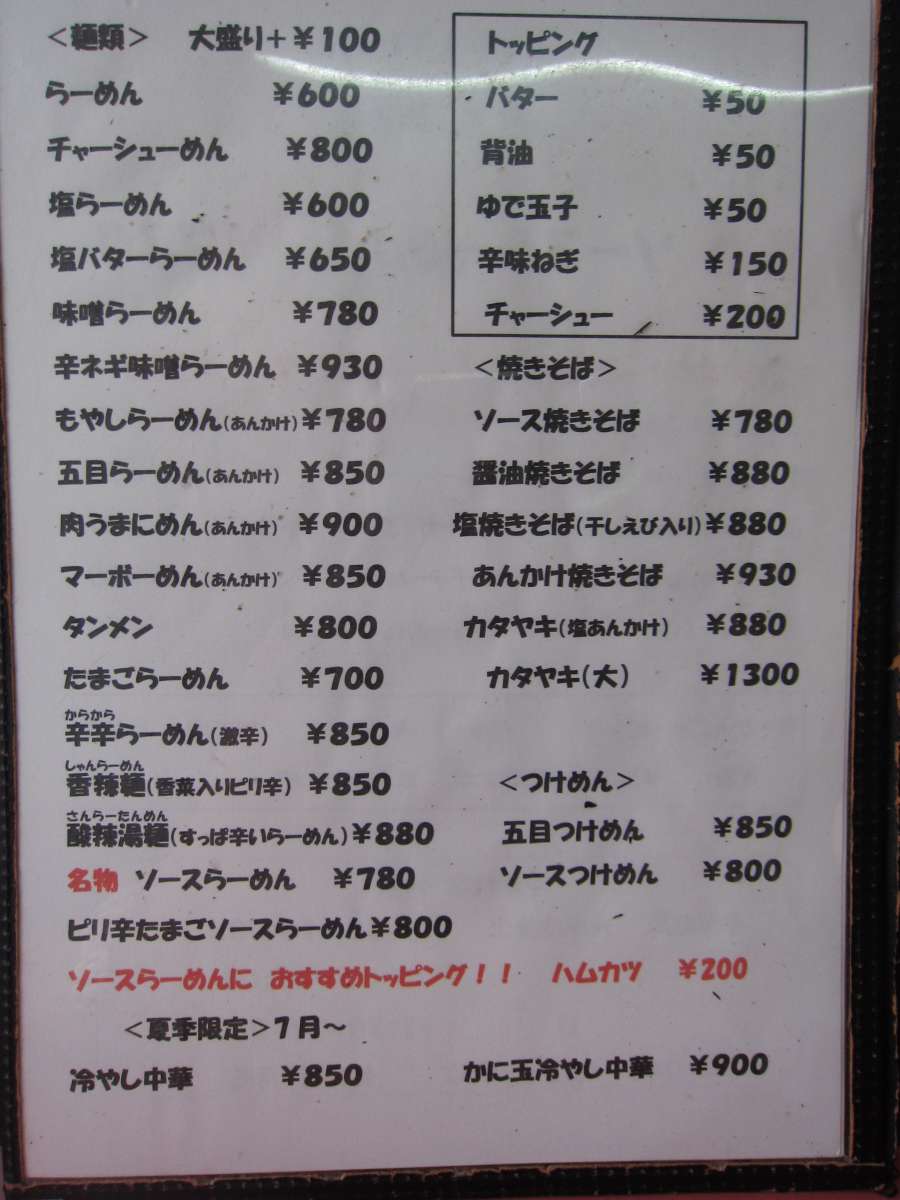 ＜麺類＞ 大盛り＋￥100
らーめん ￥600
チャーシューめん ￥800
塩らーめん ￥600
塩バターらーめん ￥650
味噌らーめん ￥780
辛ネギ味噌らーめん ￥930
もやしらーめん(あんかけ) ￥780
五目らーめん(あんかけ) ￥850
肉うまにめん(あんかけ) ￥900
マーボーめん(あんかけ) ￥850
タンメン ￥800
たまごらーめん ￥700
からから
辛辛らーめん(激辛) ￥850
しゃんらーめん
香辣麺(香菜入りピリ辛) ￥850
さんらーたんめん
酸辣湯麺(すっぱ辛いらーめん) ￥880
名物 ソースらーめん ￥780
ピリ辛たまごソースらーめん ￥800
トッピング
バター ￥50
背油 ￥50
ゆで玉子 ￥50
辛味ねぎ ￥150
チャーシュー ￥200
＜焼きそば＞
ソース焼きそば ￥780
醤油焼きそば ￥880
塩焼きそば(干しえび入り) ￥880
あんかけ焼きそば ￥930
カタヤキ(塩あんかけ) ￥880
カタヤキ(大) ￥1300
＜つけめん＞
五目つけめん ￥850
ソースつけめん ￥800
ソースらーめんに おすすめトッピング！！ ハムカツ ￥200
＜夏季限定＞7月～
冷やし中華 ￥850
かに玉冷やし中華 ￥900